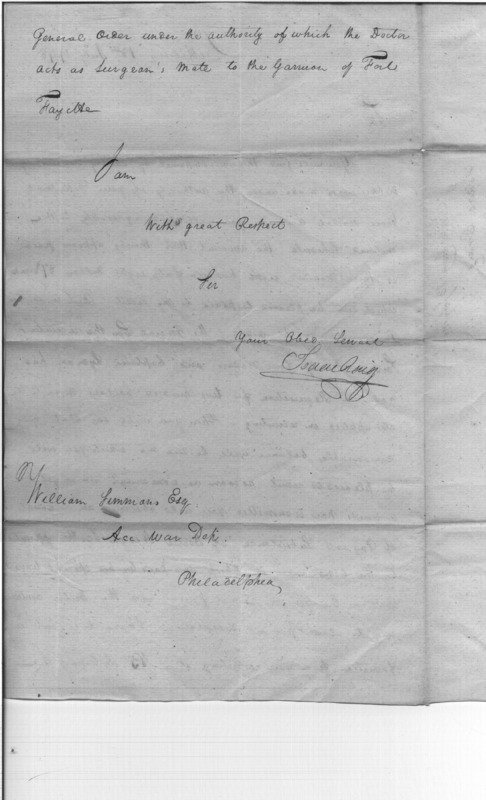 General Order under the authority of which the Doctor
acts as Surgeon's Mate to the Garrison of Fort
Fayette
I am
With great Respect
Sir
Your Obed. Servant
Isaac Craig
William Simmons Esq
Acc. War Dept.
Philadelphia